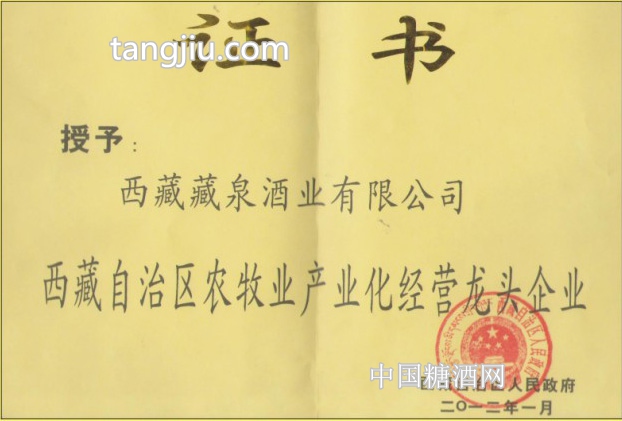 证书
tangjiu.com
授予：
西藏藏泉酒业有限公司
西藏自治区农牧业产业化经营龙头企业
中国糖酒网
人民政府
二〇一二年一月